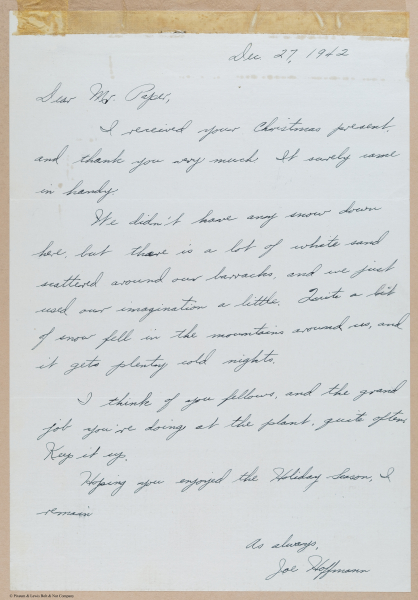 Dec 27, 1942
Dear Mr. Paper,
I received your Christmas present,
and thank you very much. It surely came
in handy.
We didn't have any snow down
here, but there is a lot of white sand
scattered around our barracks, and we just
used our imagination a little. Quite a bit
of snow fell in the mountains around us, and
it gets plenty cold nights.
I think of you fellows, and the grand
job you're doing at the plant, quite often.
Keep it up.
Hoping you enjoyed the Holiday Season, I
remain
As always,
Joe Hoffmann
© Pheoll & Lewis Bolt & Nut Company